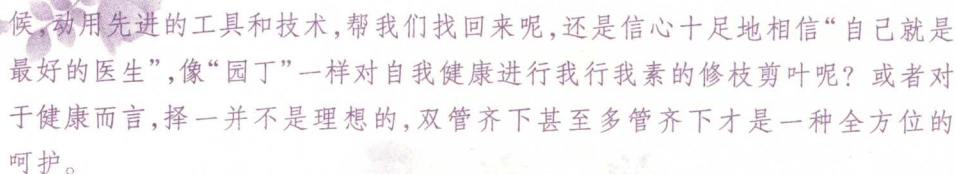 候,动用先进的工具和技术,帮我们找回来呢,还是信心十足地相信“自己就是
最好的医生”,像“园丁”一样对自我健康进行我行我素的修枝剪叶呢?或者对
于健康而言,择一并不是理想的,双管齐下甚至多管齐下才是一种全方位的
呵护。